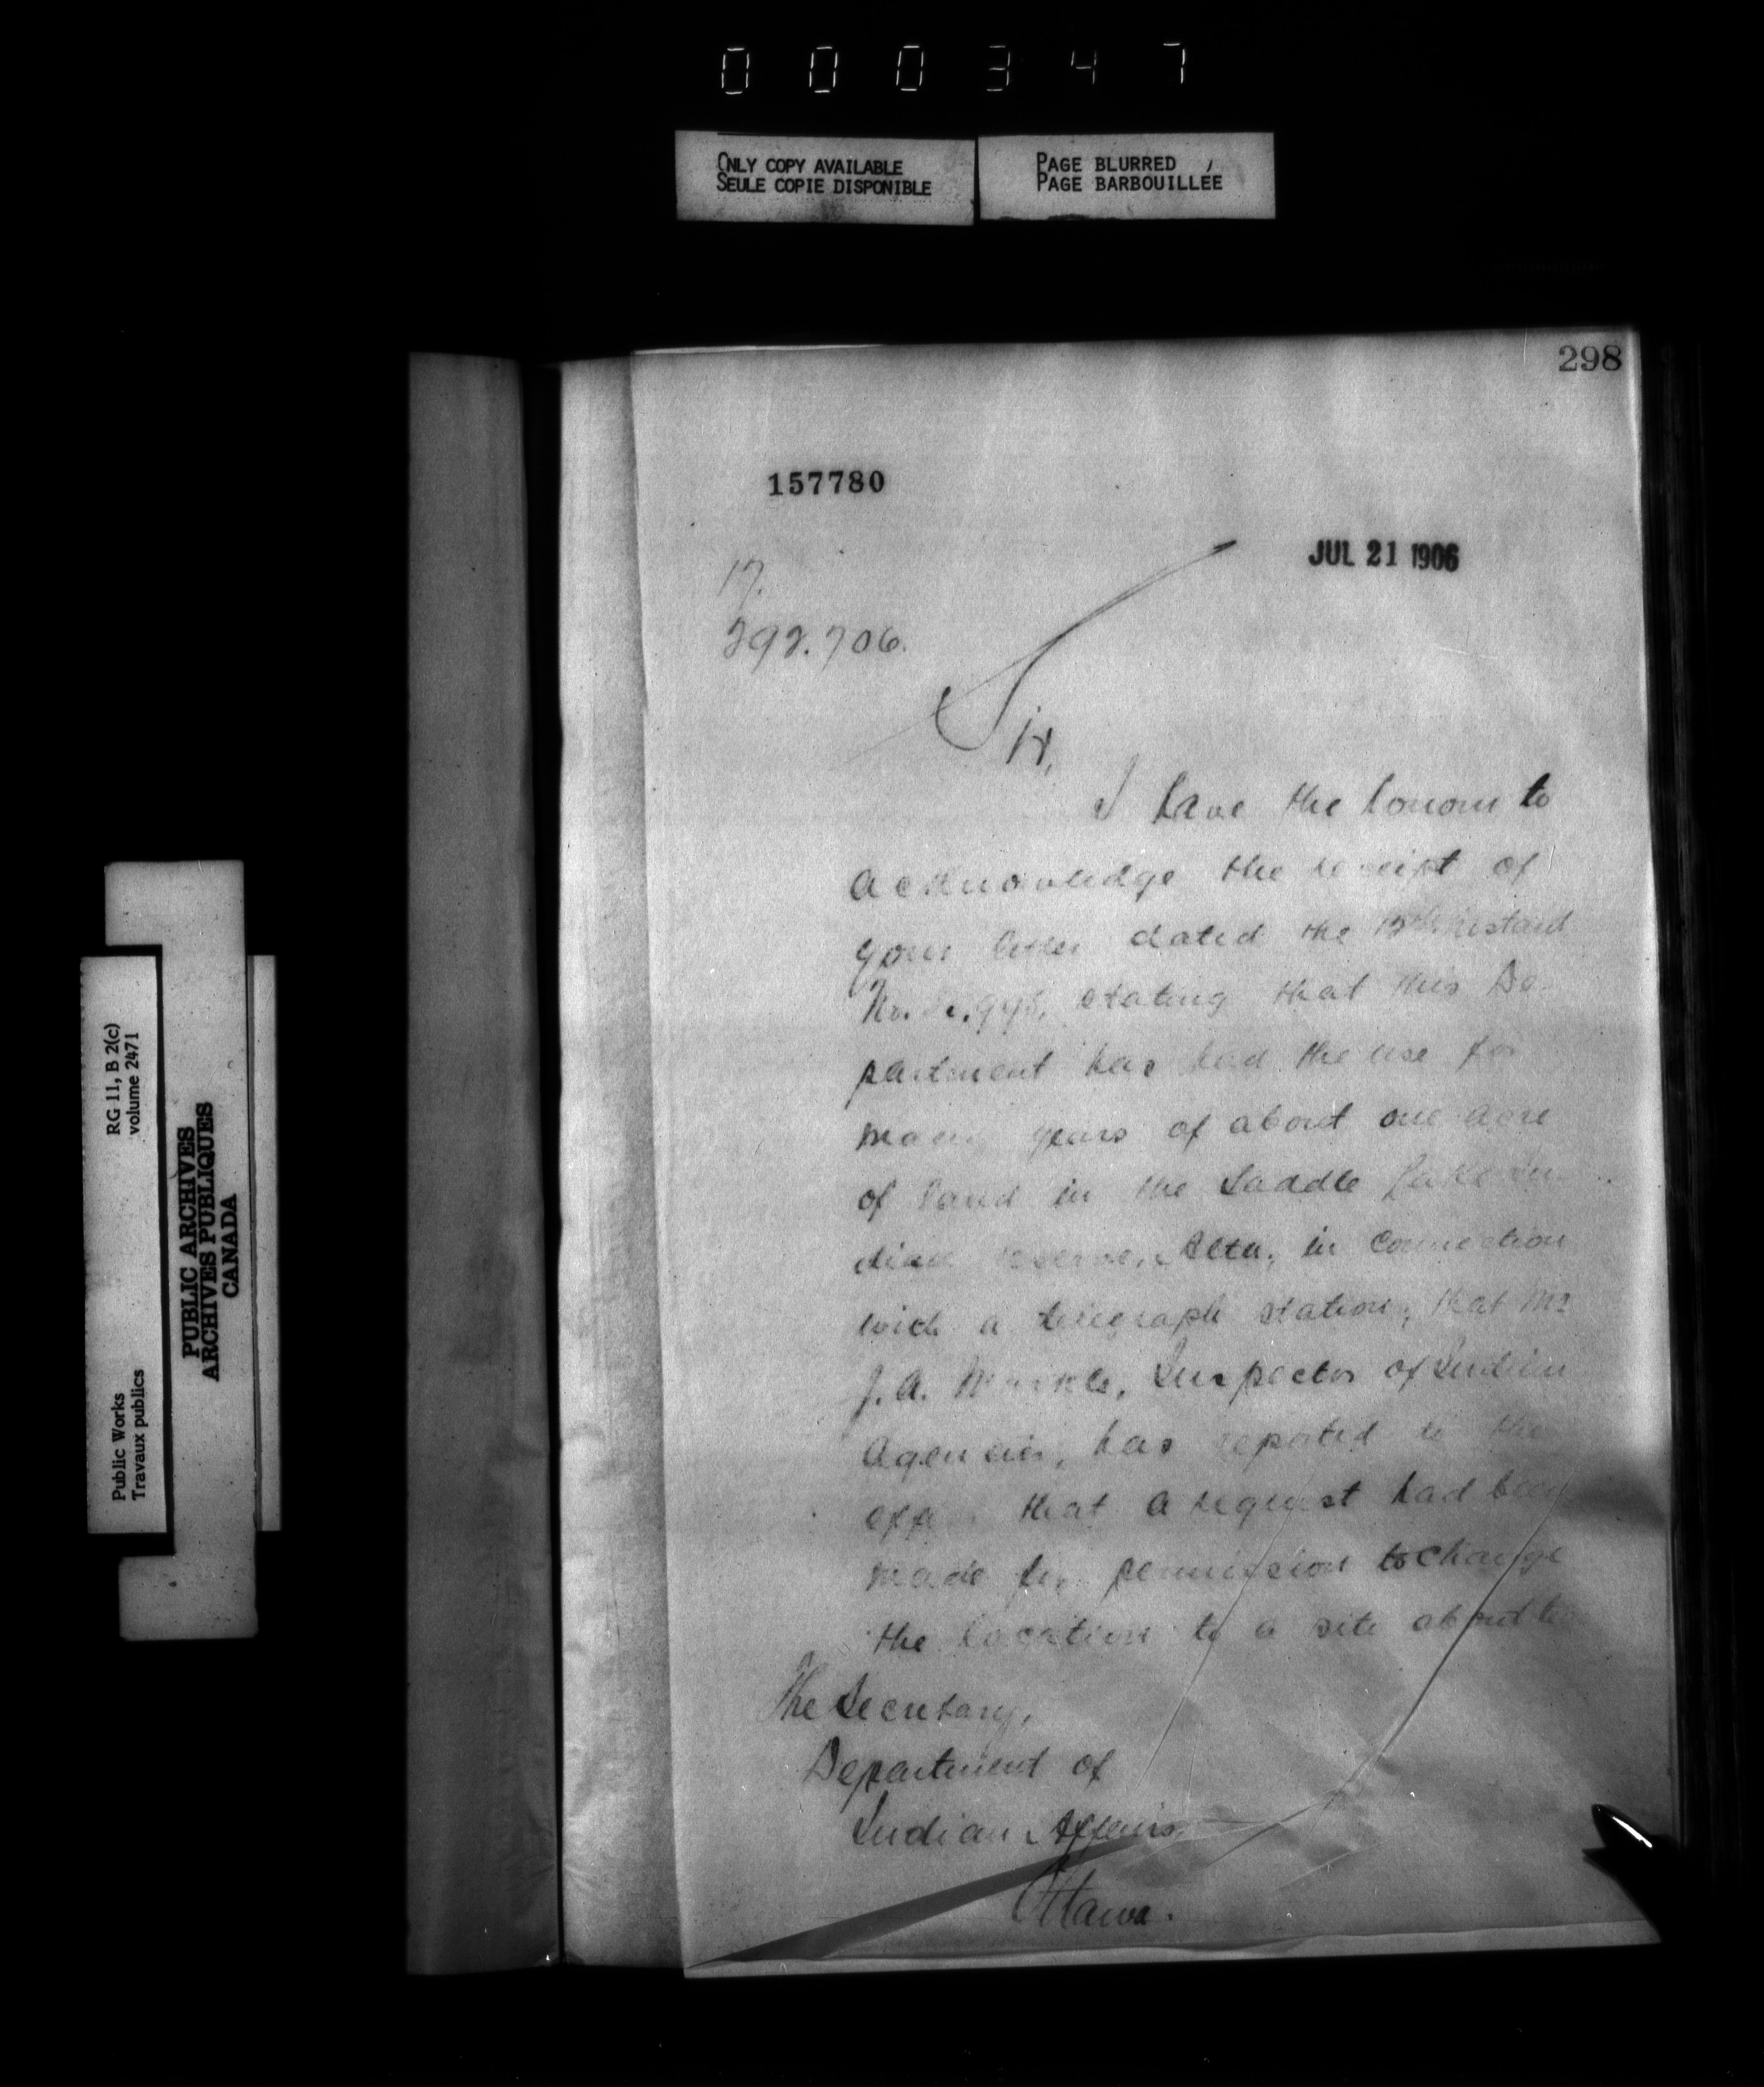 000347
ONLY COPY AVAILABLE
SEULE COPIE DISPONIBLE
PAGE BLURRED
PAGE BARBOUILLEE
298
157780
JUL 21 1906
17.
292.706.
Sir,
I have the honour to
acknowledge the receipt of
your letter dated the instant
No. stating that this De-
partment has had the use for
many years of about one acre
of land in the Saddle Lake In-
dian reserve, Alta, in connection
with a telegraph station; that Mr
J. A. Markle, Inspector of Indian
Agencies, has reported to the
effect that a request had been
made for permission to change
the location to a site about
The Secretary,
Department of
Indian Affairs,
Ottawa.
RG 11, B 2(c)
volume 2471
Public Works
Travaux publics
PUBLIC ARCHIVES
ARCHIVES PUBLIQUES
CANADA